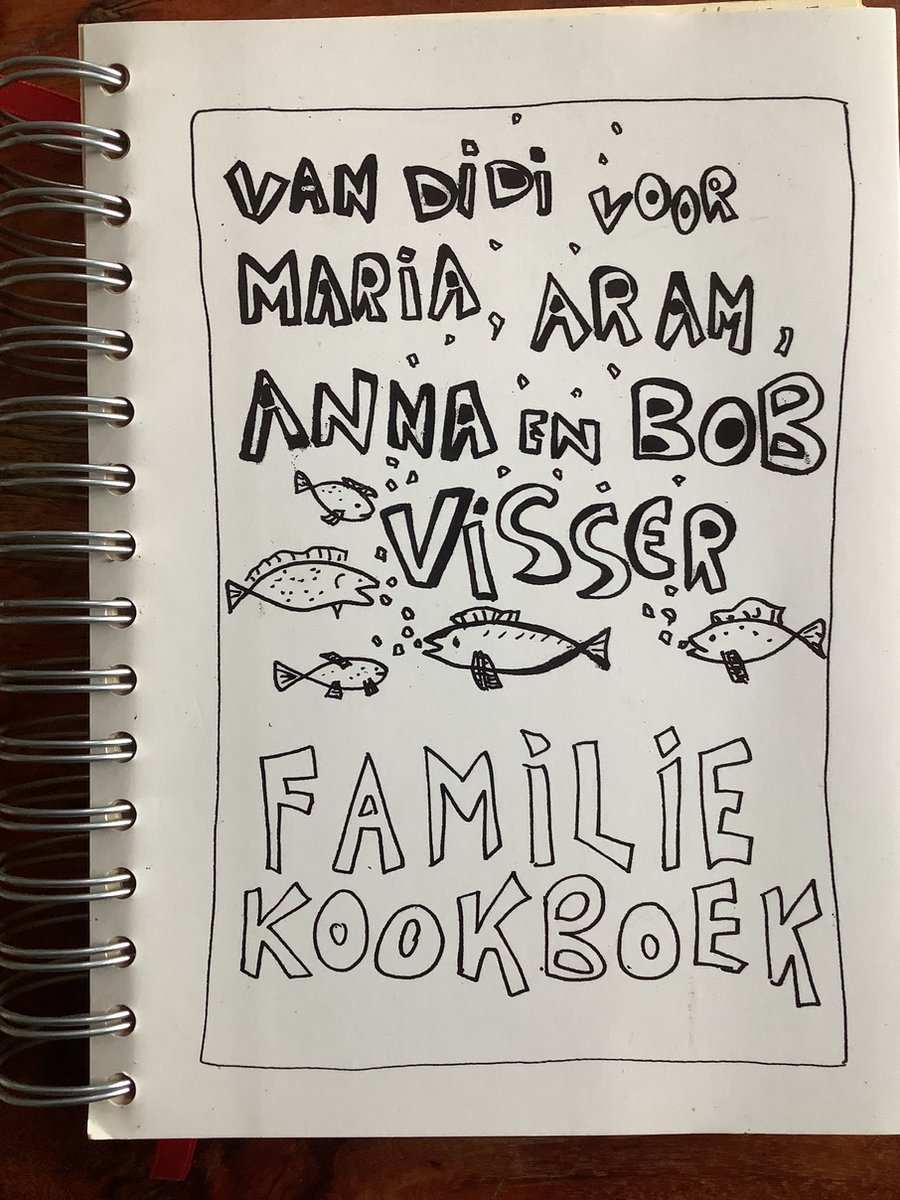 VAN DiDi VOOR
MARiA, ARAM,
ANNA EN BOB
ViSSER
FAMiLiE
KOOKBOEK